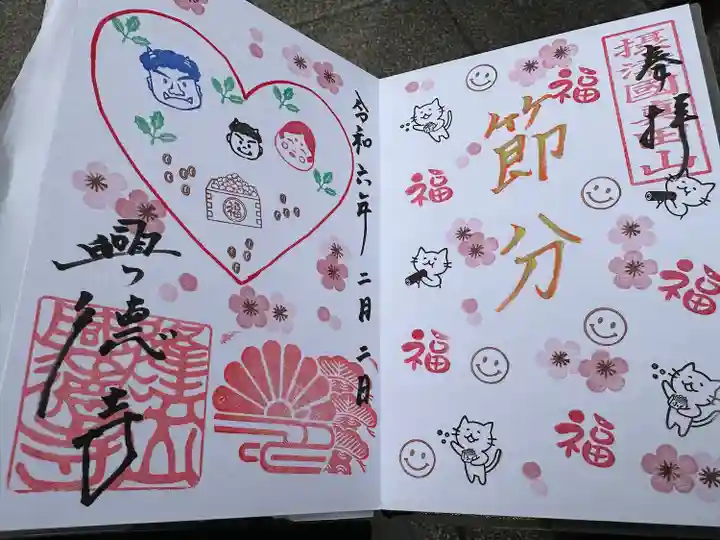 奉拝
節分
福
福
福
福
福
福
令和六年二月二日
福
興徳寺